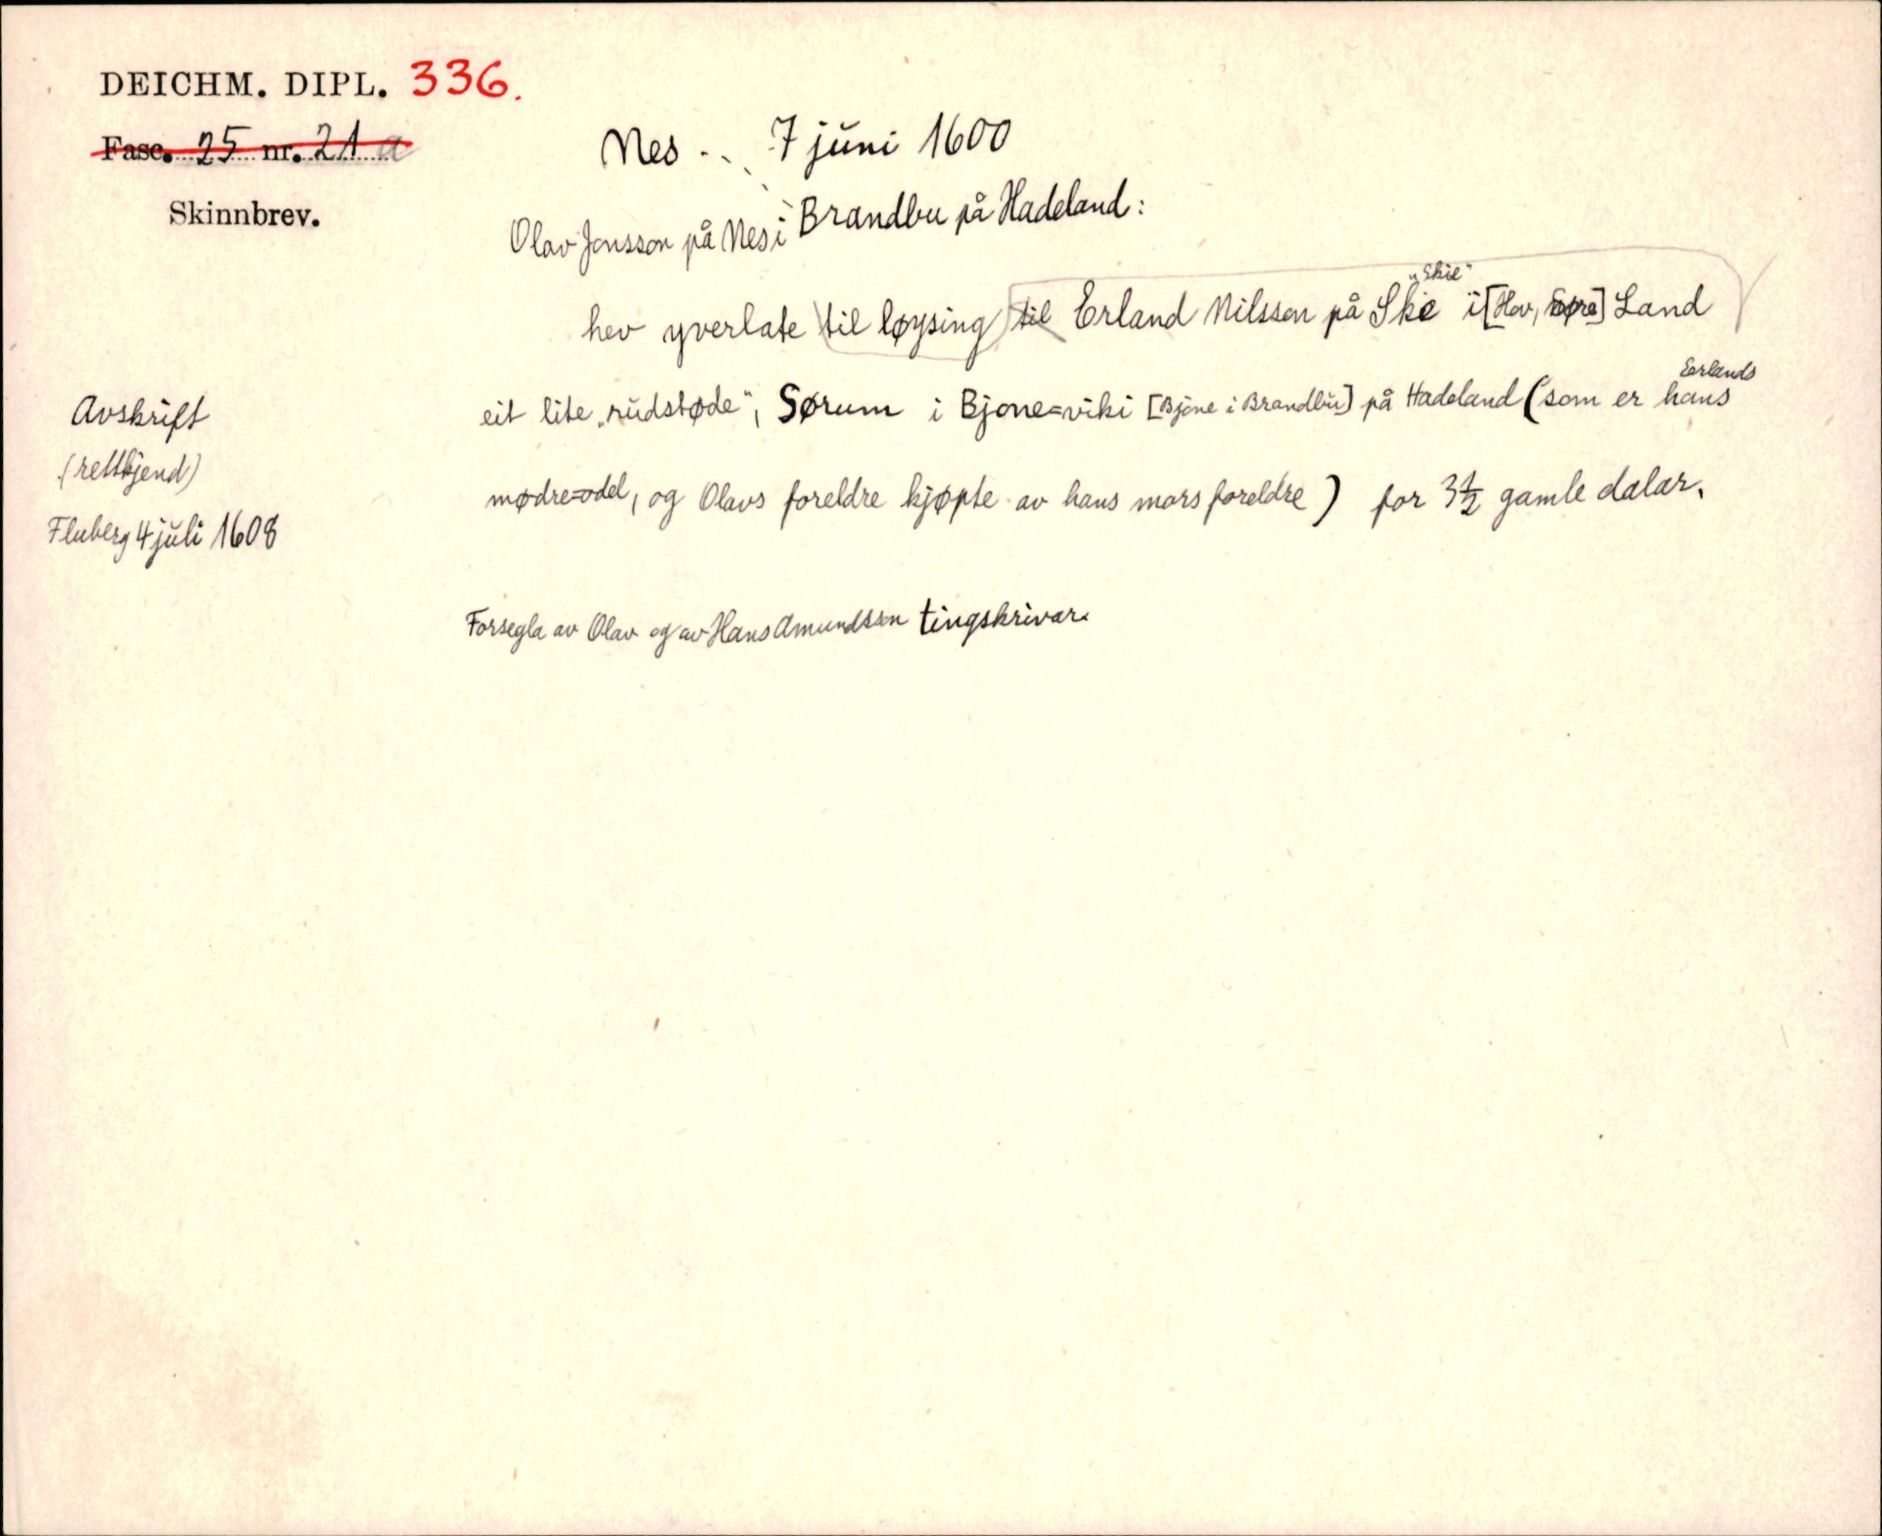 DEICHM. DIPL. 336.
Fasc. 25 nr. 21 a
Skinnbrev.
Nes 7 juni 1600
Olav Jonsson på Nes i Brandbu på Hadeland:
"Skie"
hev yverlate til løysing til Erland Nilsson på Ske i [Hov, Søre] Land
Erlands
eit lite "rudstøde", Sørum i Bjone=viki [Bjone i Brandbu] på Hadeland (som er hans
mødre=odel, og Olavs foreldre kjøpte av hans mors foreldre) for 3½ gamle dalar.
Forsegla av Olav og av Hans Amundsson tingskrivar.
Avskrift
(rettkjend)
Fluberg 4 juli 1608